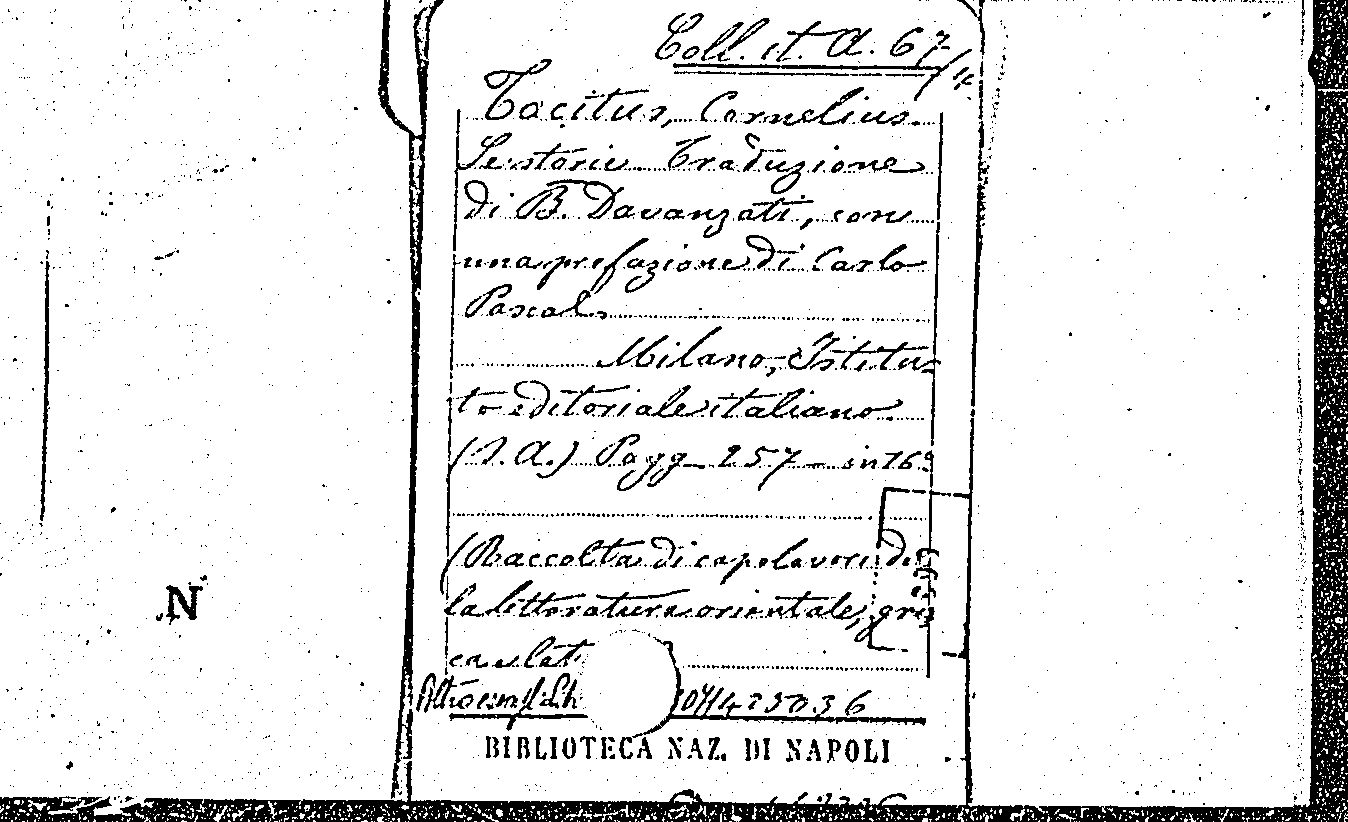 Coll. it. A. 67/14
Tacitus, Cornelius.
Le storie. Traduzione
di B. Davanzati, con
una prefazione di Carlo
Pascal.
Milano, Istitu-
to editoriale italiano.
(S. A.) Pagg. 257 - in 16º
(Raccolta di capolavori del
la letteratura orientale, gre
ca e lat
Altro esempl.
BIBLIOTECA NAZ. DI NAPOLI
N